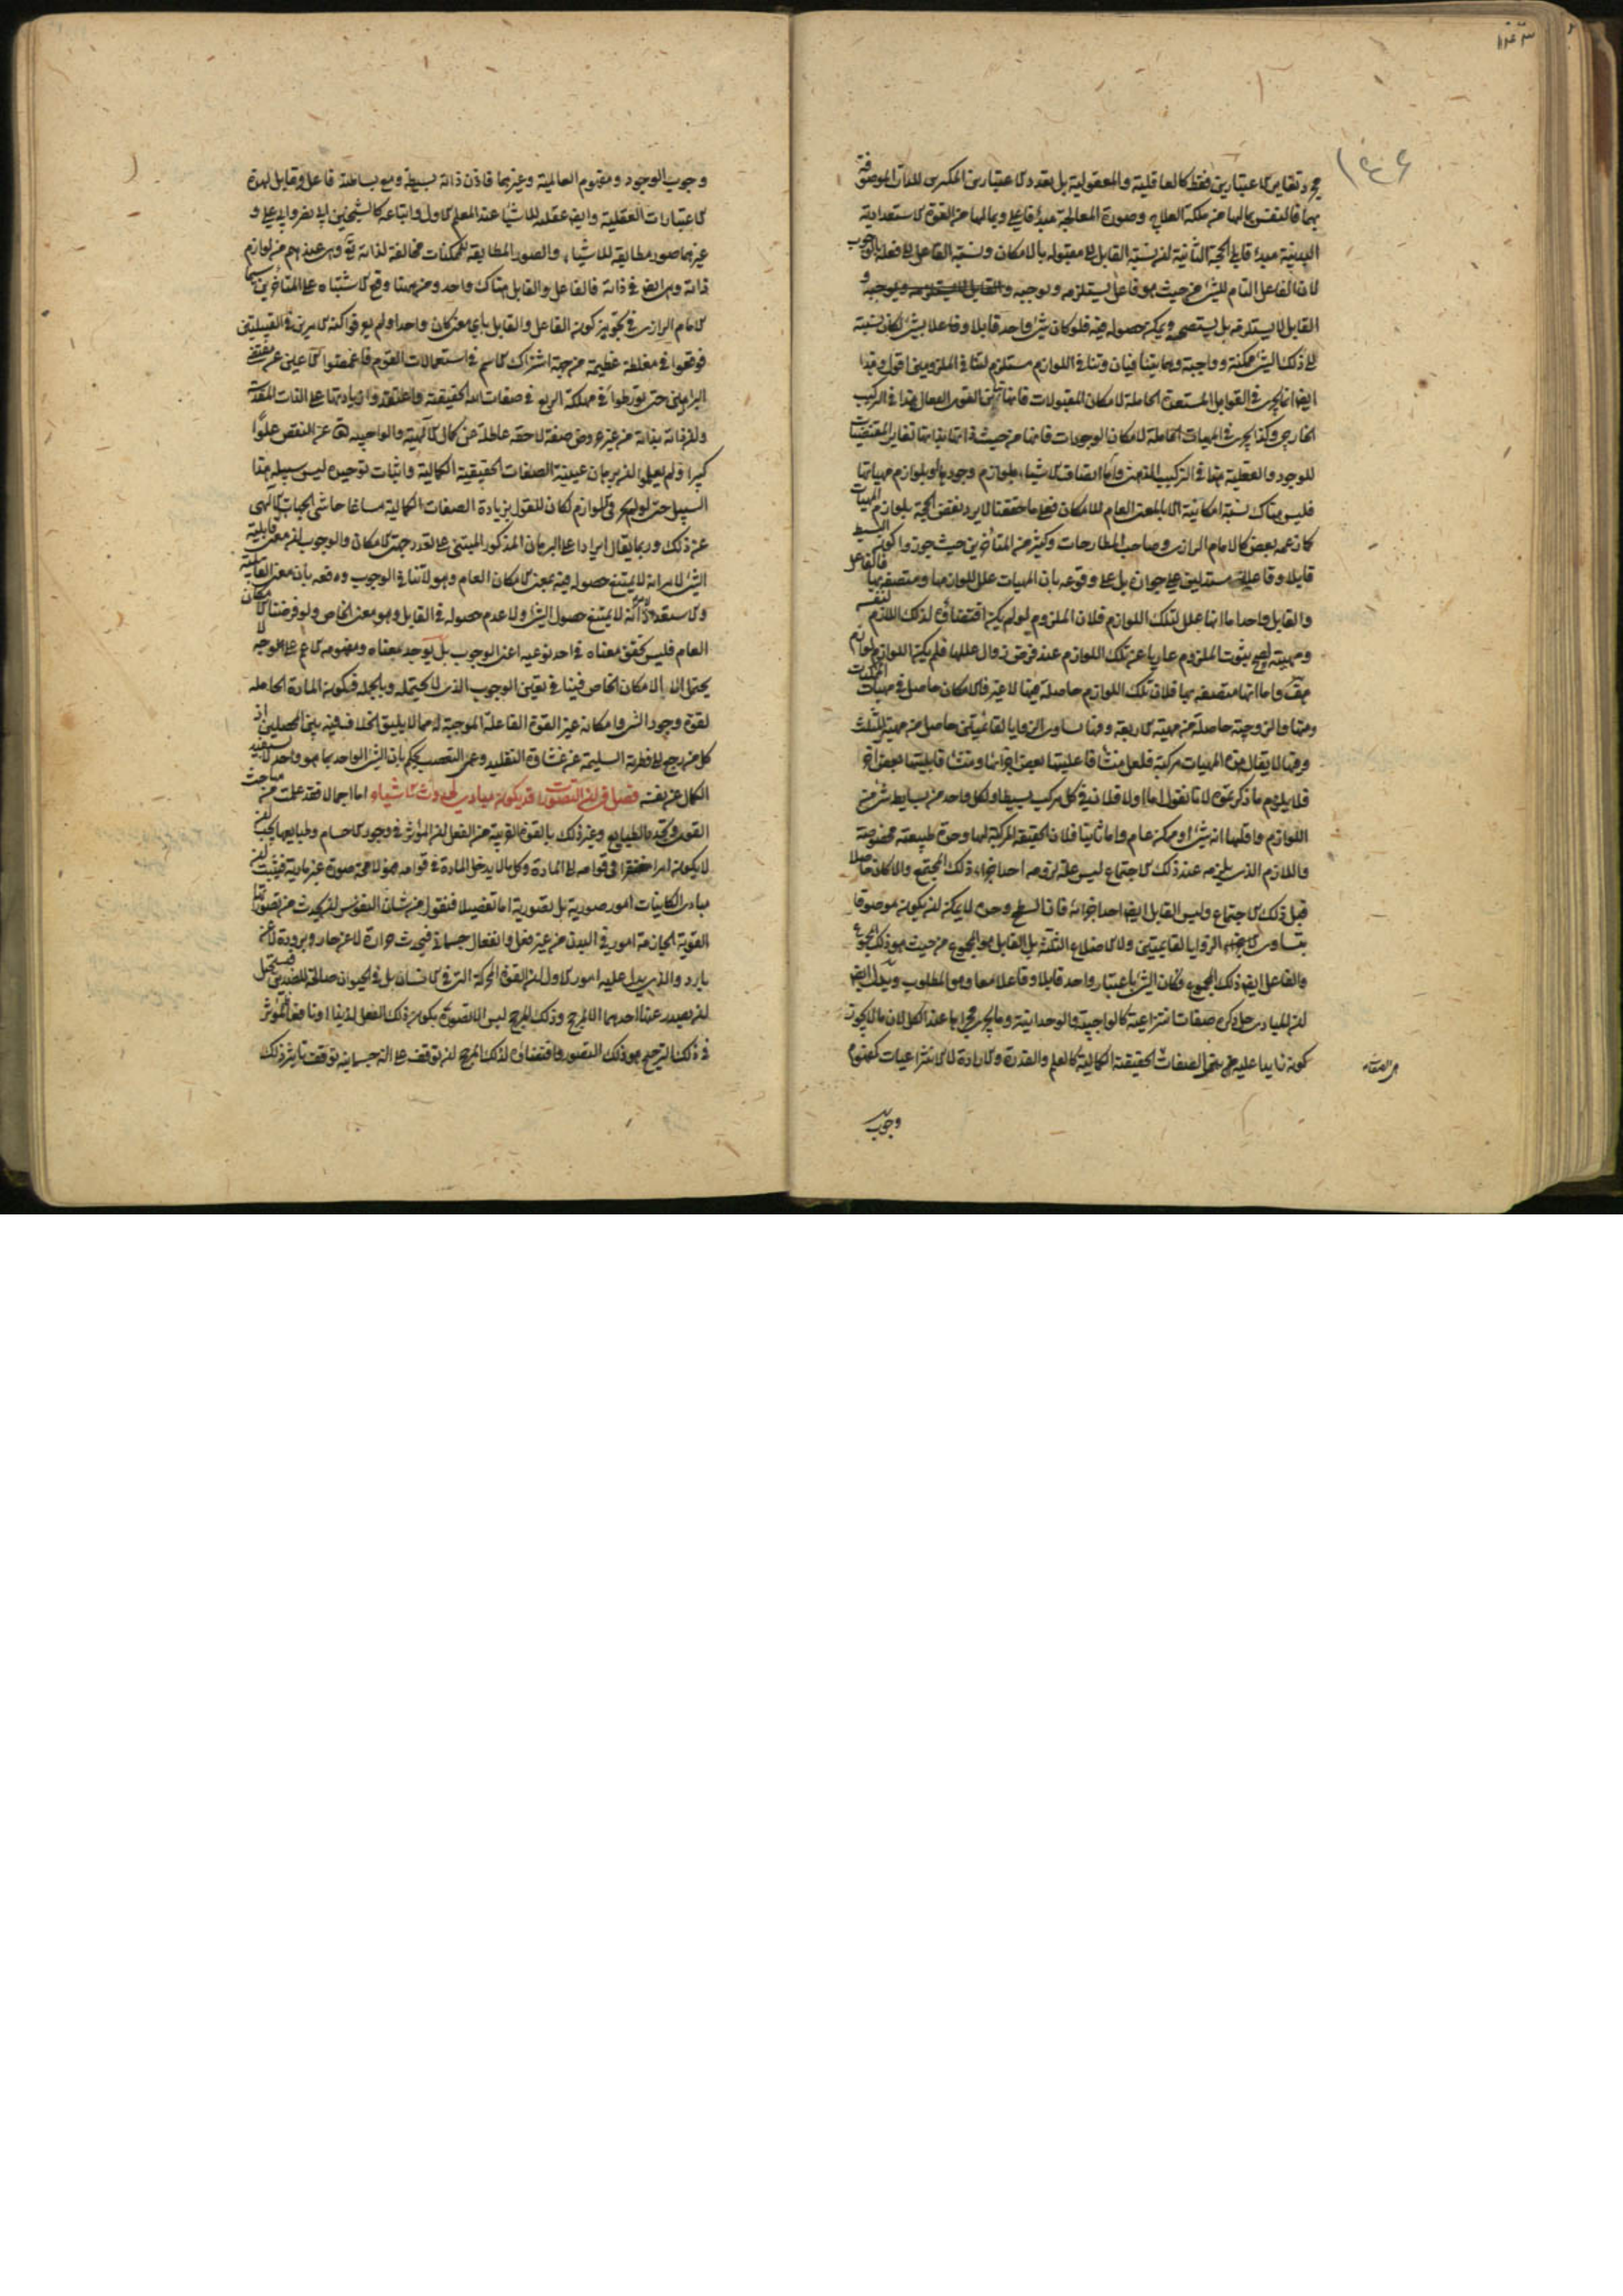 مجرد تغاير الاعتبارين فقط كالعاقلية والمعقولية بل تعدد الاعتبارين المكثرين للذات الموصوفة
بهما فالنفس بما لها من ملكة العلاج وصورة المعالجة مبدأ فاعلي وبما لها من القوة الاستعدادية
البدنية مبدأ قابلي الحجة الثانية ان نسبة القابل الى مقبوله بالامكان ونسبة الفاعل الى فعله بالوجوب
لان الفاعل التام للشئ من حيث هو فاعل يستلزمه ويوجبه و
القابل لا يستلزمه بل يستصحبه ويمكن حصوله فيه فلو كان شئ واحد قابلا وفاعلا لشئ لكان نسبته
الى ذلك الشئ ممكنة وواجبة وهما متنافيان وتنافي اللوازم مستلزم لتنافي الملزومين اقول وهذا
ايضا انما يجري في القوابل المستعدة الحاملة لامكان المقبولات فانها تباين القوى الفعال هذا في التركيب
الخارجي وكذا يجري في المهيات الحاملة لامكان الوجودات فانها من حيث ذاتها بذاتها تغاير المقتضيات
للوجود والفعلية هذا في التركيب الذهني واما اتصاف الاشياء بلوازم وجوداتها وبلوازم مهياتها
فليس هناك نسبة امكانية الا بالمعنى العام للامكان فعلى ما حققنا لا يرد نقض الحجة بلوازم المهيات
كما زعمه بعض كالامام الرازي وصاحب المطارحات وكثير من المتأخرين حيث جوزوا كون البسيط
قابلا وفاعلا مستدلين على جوازه بل على وقوعه بان المهيات علل للوازمها ومتصفة بها فالفاعل
والقابل واحد اما انها علل لتلك اللوازم فلان الملزوم لو لم يكن اقتضاؤه لذلك اللازم لنفسه
ومهيته لصح ثبوت الملزوم عاريا عن تلك اللوازم عند فرض زوال عللها فلم يكن اللوازم لوازم
هف واما انها متصفة بها فلان تلك اللوازم حاصلة فيها لا غير فالامكان حاصل في مهيات الممكنات
ومنها والزوجية حاصلة من مهية الاربعة وفيها تساوي الزوايا لقائمتين حاصل من مهية المثلث
وفيها لا يقال هذه المهيات مركبة فلعل منشأ فاعليتها بعض اجزائها ومنشأ قابليتها بعض آخر
فلا يلزم ما ذكرتموه لانا نقول اما اولا فلان في كل مركب بسيطا ولكل واحد من بسايطه شئ من
اللوازم واقلها انه شئ او ممكن عام واما ثانيا فلان الحقيقة المركبة لها وحدة طبيعية مخصوصة
واللازم الذي يلزمه عند ذلك الاجتماع ليس علة لزومه احد اجزاء ذلك المجتمع والا كان حاصلا
قبل ذلك الاجتماع وليس القابل ايضا احد اجزائه فان السطح وحده لا يمكن ان يكون موصوفا
بتساوي الزوايا لقائمتين ولا الاضلاع الثلثة بل القابل هو المجموع من حيث هو ذلك المجموع
والفاعل ايضا ذلك المجموع فكان الشئ باعتبار واحد قابلا وفاعلا معا وهو المطلوب ويدل ايضا
ان للمبادي جل ذكره صفات انتزاعية كالواجبية والوحدانية وما يجري مجراها عند الكل لان ما لا يكون
كونه زايدا عليه هي الصفات الحقيقية الكمالية كالعلم والقدرة والارادة لا الانتزاعيات كمفهوم
وجوب
وجوب الوجود ومفهوم العالمية وغيرهما فاذن ذاته بسيطة ومع بساطته فاعل وقابل لهذه
الاعتبارات العقلية وايضا عقله للاشياء عند المعلم الاول واتباعه كالشيخين ابي نصر وابي علي و
غيرهما صور مطابقة للاشياء والصور المطابقة للممكنات مخالفة لذاته تع وهي عندهم من لوازم
ذاته وهي ايضا في ذاته فالفاعل والقابل هناك واحد ومن ههنا وقع الاشتباه على المتأخرين سيما
الامام الرازي في تجويز كون الفاعل والقابل بأي معنى كان واحدا ولم يعرفوا كنه الامر في القبيلتين
فوقعوا في مغلطة عظيمة من جهة اشتراك الاسم في استعمالات القوم فاغمضوا الاعين عن مقتضى
البراهين حتى تورطوا في مهلكة الزيغ في صفات الله الحقيقية واعتقدوا زيادتها على الذات المقدسة
وان ذاته بذاته من غير عروض صفة لاحقة عاطلة عن كمال الالهية والواجبية تع عن النقص علوا
كبيرا ولم يعلموا ان برهان عينية الصفات الحقيقية الكمالية واثبات توحيده ليس سبيله هذا
السبيل حتى لو لم يجر في اللوازم لكان للقول بزيادة الصفات الكمالية مساغا حاشى الجناب الالهي
عن ذلك وربما يقال ايرادا على البرهان المذكور المبتنى على تعدد جهتي الامكان والوجوب ان معنى قابلية
الشئ لامر انه لا يمتنع حصوله فيه بمعنى الامكان العام وهو لا تنافي الوجوب ودفعه بان معنى القابلية
والاستعداد انه لا يمتنع حصول الشئ ولا عدم حصوله في القابل وهو معنى الخاص ولو فرضنا الامكان
العام فليس تحقق معناه في احد نوعيه اعنى الوجوب بل يوجد معناه ومفهومه الاعم على وجه لا
يحتمل الا الامكان الخاص فينافي تعين الوجوب الذي لا يحتمله وبالجملة فيكون المادة الحاملة
لقوة وجود الشئ وامكانه غير القوة الفاعلة الموجبة له مما لا يليق الخلاف فيه بين المحصلين اذ
كل من يرجع الى فطرته السليمة عن غشاوة التقليد وعمى التعصب يحكم بان الشئ الواحد بما هو واحد لا يستفيد
الكمال عن نفسه فصل في ان التصورات قد يكون مبادي لحدوث الاشياء اما اجمالا فقد علمت من مباحث
القوى وتحديد الطبايع وغير ذلك بالقوة القريبة من الفعل ان المؤثر في وجود الاجسام وطبايعها يجب ان
لا يكون امرا مفتقرا في قوامه الى المادة وكل ما لا يدخل المادة في قوامه فهو لا محة صورة غير مادية فيثبت ان
مبادي الكاينات امور صورية بل تصورية اما تفصيلا فنقول من شأن النفوس ان يحدث من تصوراتها
القوية الجازمة امور في البدن من غير فعل وانفعال جسماني فيحدث حرارة لا عن حار وبرودة لا عن
بارد والذي يدل عليه امور الاول ان القوة المحركة التي في الانسان بل في الحيوان صالحة للضدين فيستحيل
ان يصدر عنها احدهما الا لمرجح وذلك المرجح ليس الا تصور يكون ذلك الفعل لذيذا او نافعا فالمؤثر
في ذلك الترجيح هو ذلك التصور واقتضاؤه لذلك المرجح ان توقف على الة جسمانية توقف تأثير ذلك